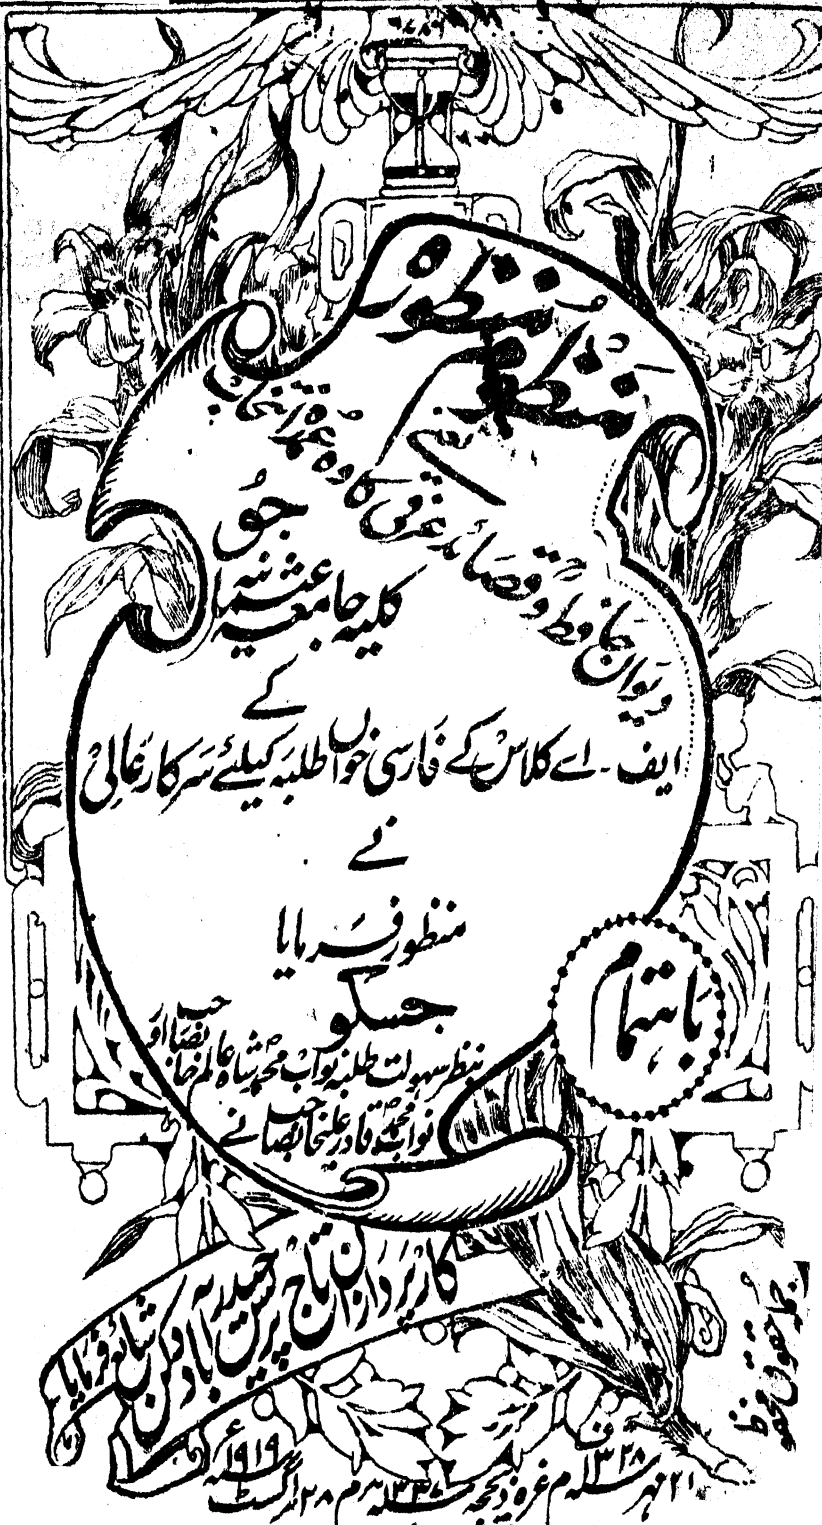 ۷۸۶
منظورہ
منظوم
یعنی
دیوان حافظ و قصائد عرفی کا وہ عمدہ انتخاب
جو
کلیہ جامعہ عثمانیہ
کے
ایف۔اے کلاس کے فارسی خواں طلبہ کیلئے سرکار عالی
نے
منظور فرمایا
جسکو
بنظر سہولت طلبہ نواب محمد شاہ عالم خانصاحب اور
نواب محمد قادر علیخانصاحب نے
باہتمام
کارپردازان تاج پریس حیدرآباد دکن شائع فرمایا
جملہ حقوق محفوظ
۲۱ مہر ۱۳۲۸ ف م غرہ ذیحجہ ۱۳۳۷ ھ م ۲۸ اگسٹ ۱۹۱۹ء